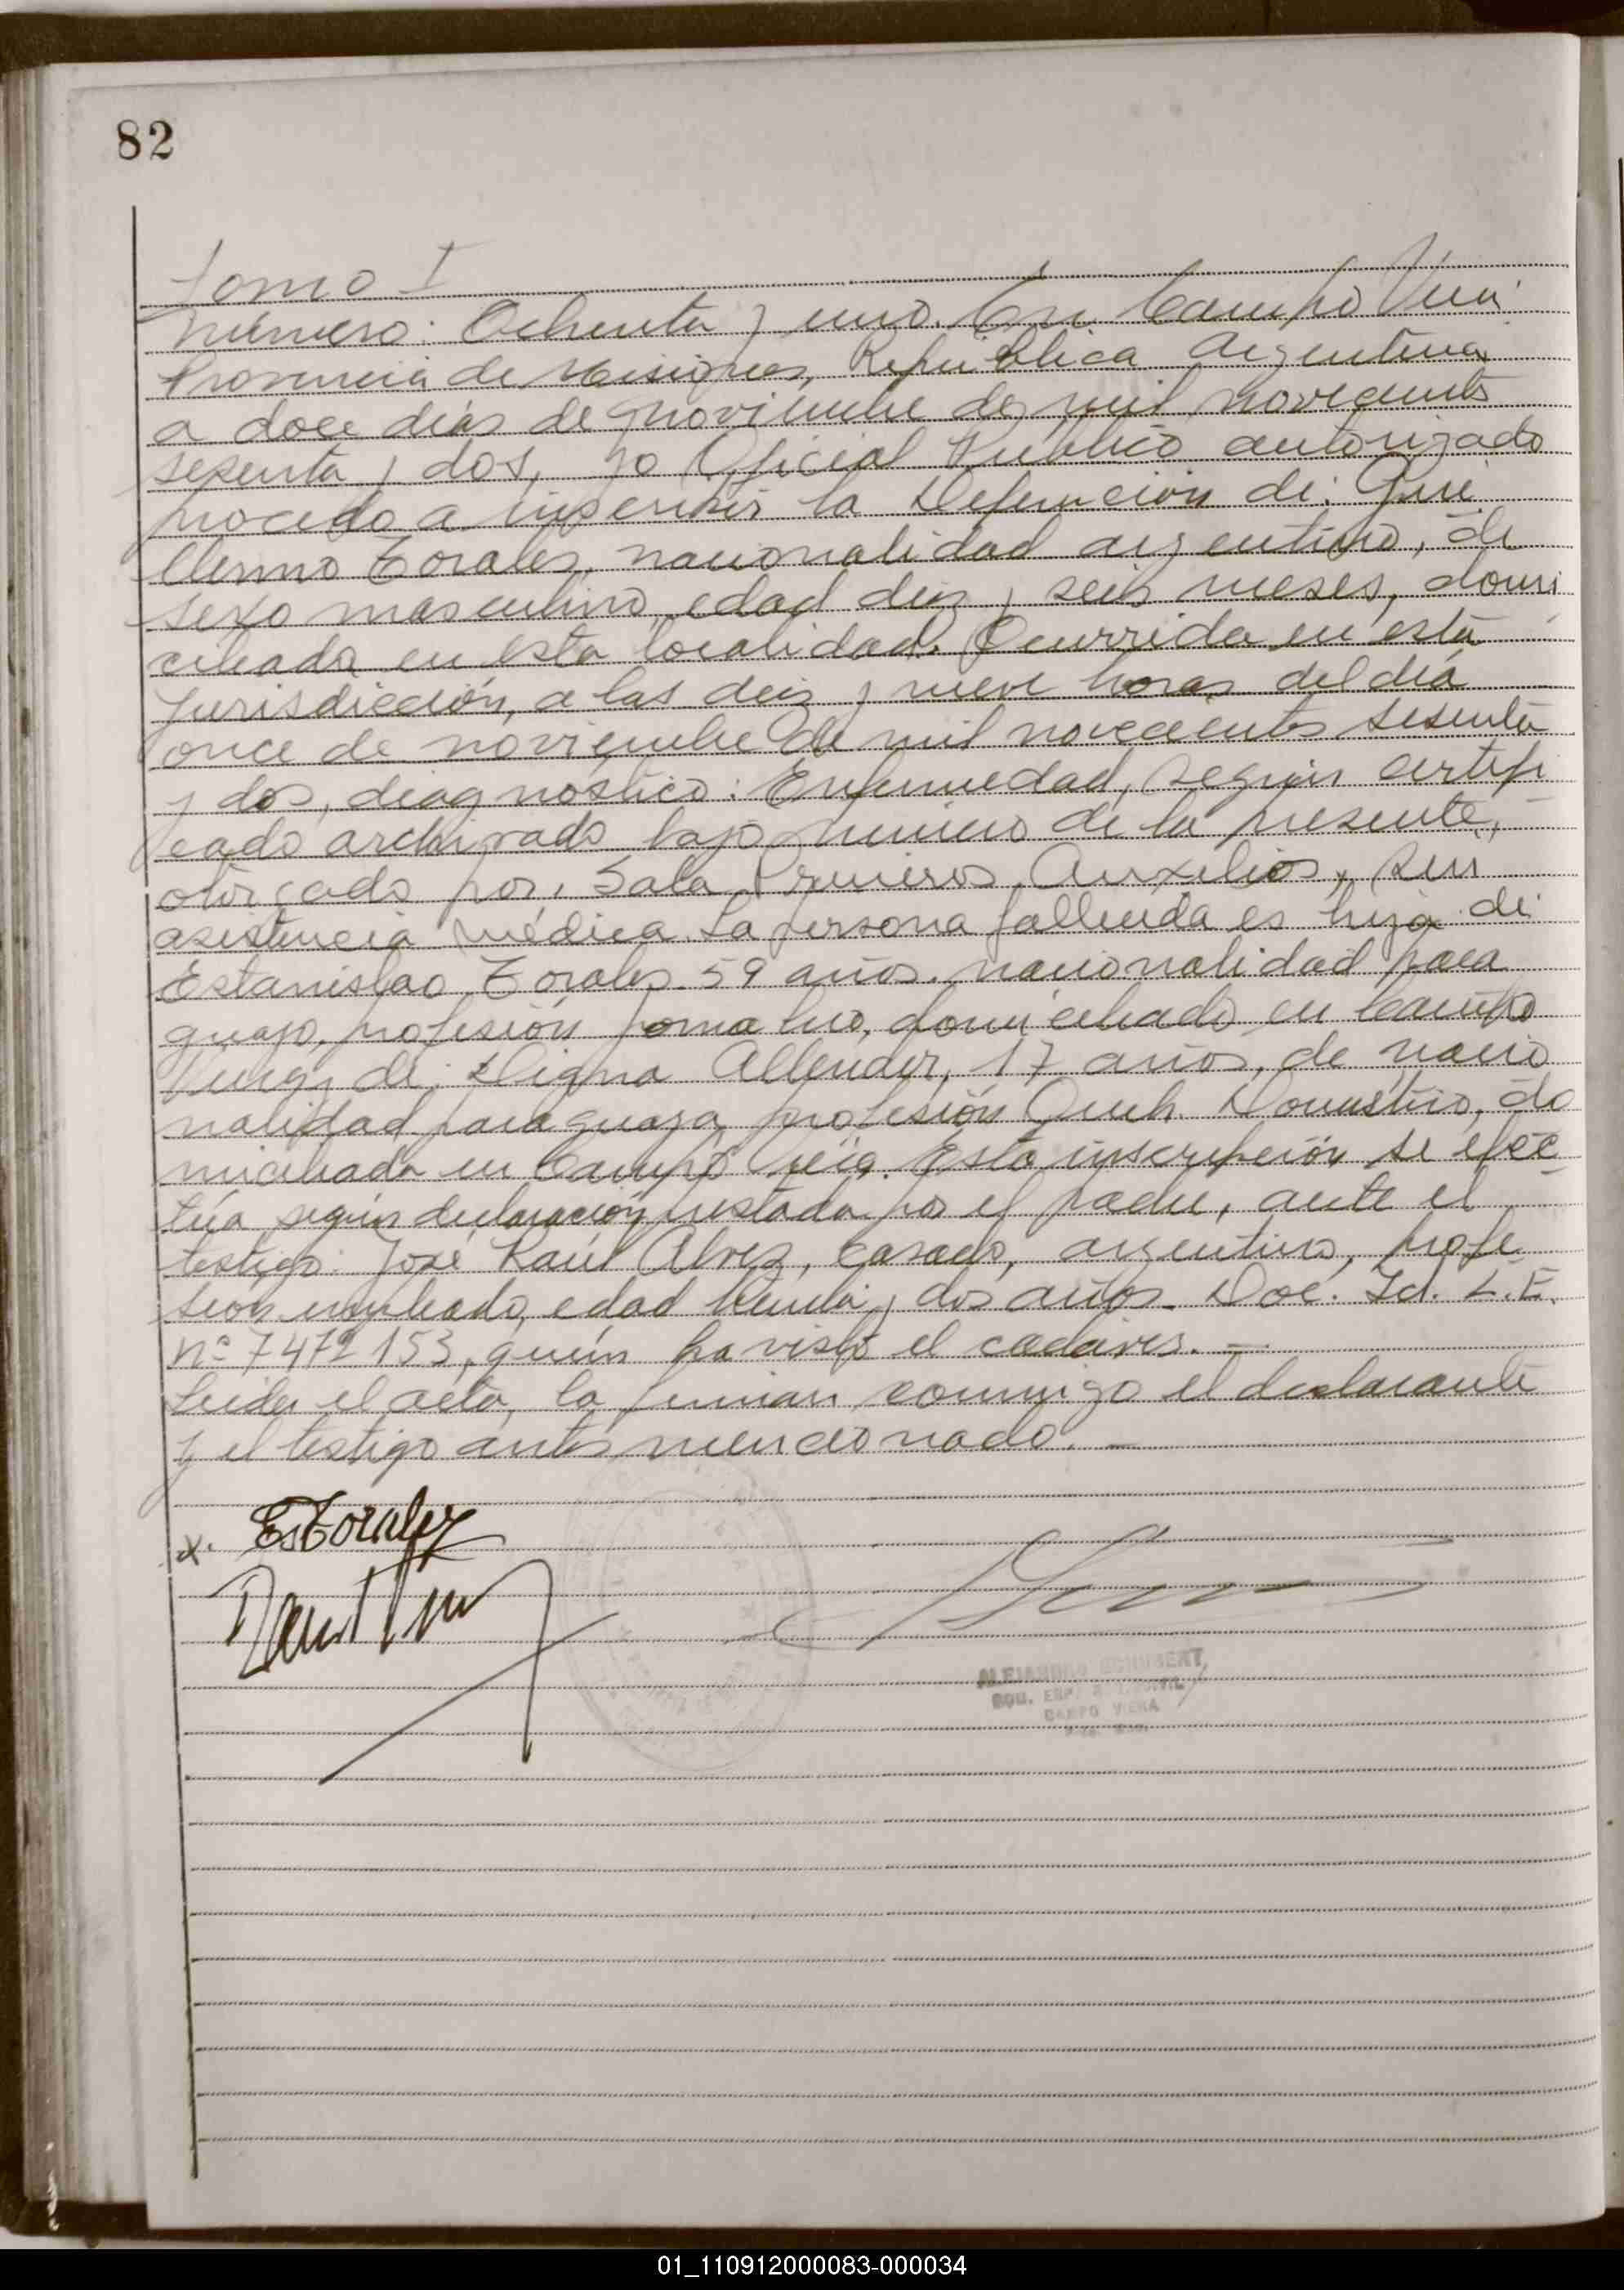 82
Tomo I
Número: Ochenta y uno. En Campo Viera
Provincia de Misiones, República Argentina,
a doce días de noviembre de mil novecientos
sesenta y dos, yo Oficial Público autorizado
procedo a inscribir la Defunción de: Gui
llermo Torales, nacionalidad argentino, de
sexo masculino, edad diez y seis meses, domi
ciliado en esta localidad. Ocurrida en esta
Jurisdicción, a las diez y nueve horas del día
once de noviembre de mil novecientos sesenta
y dos, diagnóstico: Enfermedad, según certifi
cado archivado bajo número de la presente,
otorgado por, Sala Primeros Auxilios, sin
asistencia médica. La persona fallecida es hijo de
Estanislao Torales. 59 años. nacionalidad para
guayo, profesión Jornalero, domiciliado en Campo
Viera y de: Digna Allender, 17 años, de nacio
nalidad paraguaya, profesión Queh. Doméstico, do
miciliada en Campo Viera. Esta inscripción se efec
túa según declaración prestada por el padre, ante el
testigo: José Raúl Alvez, casado, argentino, profe
sión empleado, edad treinta y dos años. Doc. Id. L.E.
Nº 7472153, quien ha visto el cadáver. —
Leída el acta, la firman conmigo el declarante
y el testigo antes mencionado. —
x. EsTorales
ALEJANDRO SCHUBERT
CAMPO VIERA
01_110912000083-000034